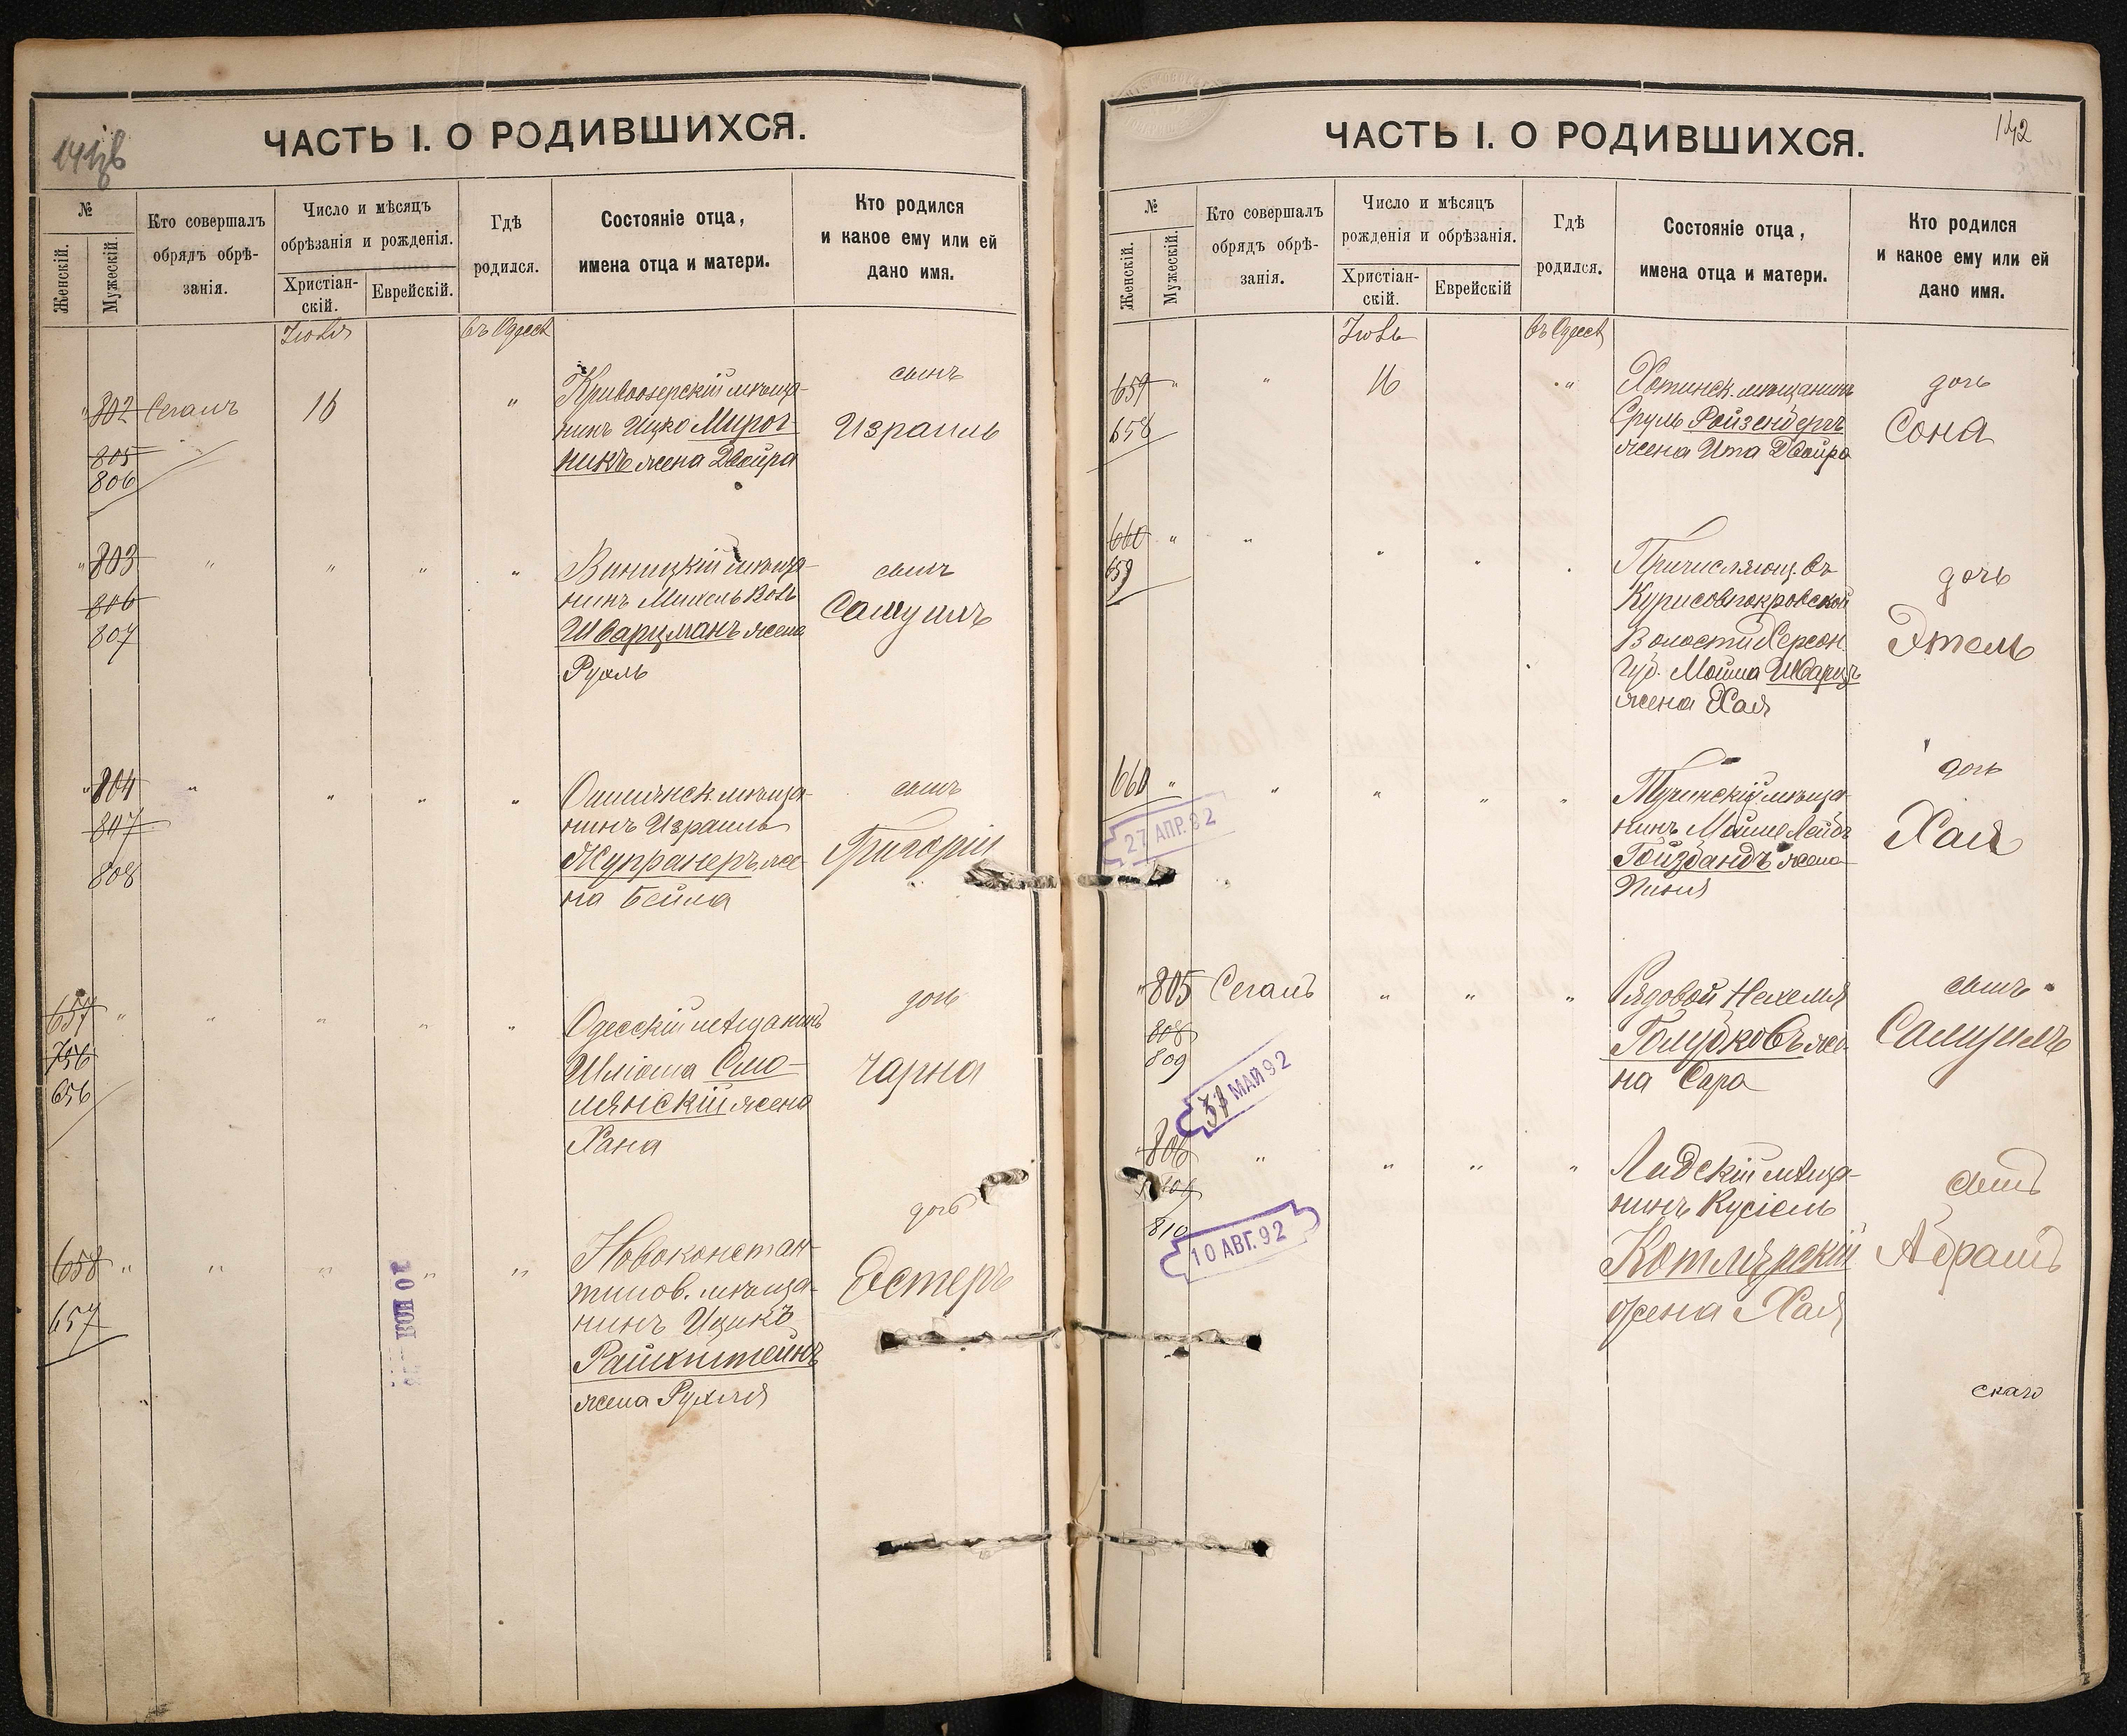 ЧАСТЬ I. О РОДИВШИХСЯ.
№
Женскій.
Мужескій.
Кто совершалъ
обрядъ обрѣ-
занія.
Число и мѣсяцъ
обрѣзанія и рожденія.
Христіан-
скій.
Еврейскій.
Гдѣ
родился.
Состояніе отца,
имена отца и матери.
Кто родился
и какое ему или ей
дано имя.
Іюля
въ Одессѣ
802 Сегалъ 16 "
805
806
Кривоозерскій мѣща-
нинъ Ицко Мирог-
никъ жена Двойра
сынъ
Израиль
" 803 " " " "
806
807
Виницкій мѣща-
нинъ Михель Волъ
Шварцманъ жена
Рухль
сынъ
Самуилъ
" 804 " " " "
807
808
мѣща-
нинъ Израиль
же-
на Бейла
сынъ
Григорій
657 " " " " "
756
656
Одесскій мѣщанинъ
Шліома Смо-
лянскій жена
Хана
дочь
Чарна
658 " " " " "
657
10 НОЯ
Новоконстан-
тинов. мѣща-
нинъ Ицикъ
Райхштейнъ
жена Рухля
дочь
Эстеръ
ЧАСТЬ I. О РОДИВШИХСЯ.
142
№
Женскій.
Мужескій.
Кто совершалъ
обрядъ обрѣ-
занія.
Число и мѣсяцъ
рожденія и обрѣзанія.
Христіан-
скій.
Еврейскій
Гдѣ
родился.
Состояніе отца,
имена отца и матери.
Кто родился
и какое ему или ей
дано имя.
Іюль
въ Одессѣ
659 " " 16 "
658
Хотинск. мѣщанинъ
Сруль Ройзенбергъ
жена Ита Двойра
дочь
Сона
660 " " " "
659
Причисляющ. въ
Курисовпокровской
Волости Херсон.
Губ. Мойша Шварцъ
жена Хая
дочь
Этель
660 " " " " "
27 АПР. 92
мѣща-
нинъ Лейбъ
Гойзбандъ жена
дочь
Хая
" 805 Сегалъ " " "
808
809
31 МАЙ 92
Рядовой Нехемія
Голубковъ же-
на Сара
сынъ
Самуилъ
" 806 " " " "
809
810
10 АВГ. 92
Лидскій мѣща-
нинъ Кусіель
Котлярскій
жена Хая
сынъ
Абрамъ
скаго